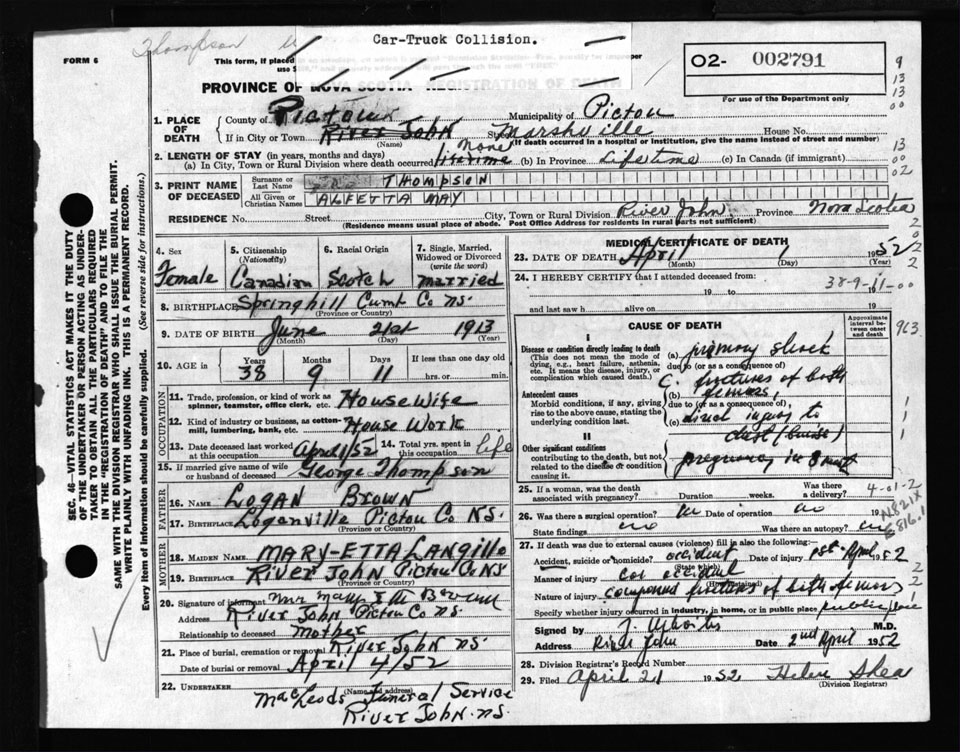 Thompson
Car-Truck Collision.
FORM 6
This form, if placed
O2- 002791
For use of the Department only
PROVINCE OF NOVA SCOTIA REGISTRATION OF DEATH
1. PLACE OF DEATH
County of Pictou Municipality of Pictou
If in City or Town River John Marshville House No.
(Name) (If death occurred in a hospital or institution, give the name instead of street and number)
2. LENGTH OF STAY (in years, months and days)
(a) In City, Town or Rural Division where death occurred None lifetime (b) In Province Lifetime (c) In Canada (if immigrant)
3. PRINT NAME OF DECEASED
Surname or Last Name THOMPSON
All Given or Christian Names ALFETTA MAY
RESIDENCE No. Street City, Town or Rural Division River John. Province Nova Scotia
(Residence means usual place of abode. Post Office Address for residents in rural parts not sufficient)
4. Sex Female
5. Citizenship (Nationality) Canadian
6. Racial Origin Scotch
7. Single, Married, Widowed or Divorced (write the word) married
8. BIRTHPLACE Springhill Cumb Co NS.
(Province or Country)
9. DATE OF BIRTH June 21st 1913
(Month) (Day) (Year)
10. AGE in Years Months Days If less than one day old
38 9 11 hrs. or min.
OCCUPATION
11. Trade, profession, or kind of work as spinner, teamster, office clerk, etc. Housewife
12. Kind of industry or business, as cotton-mill, lumbering, bank, etc. House Work
13. Date deceased last worked at this occupation April 1/52 14. Total yrs. spent in this occupation life
15. If married give name of wife or husband of deceased George Thompson
FATHER
16. NAME LOGAN BROWN
17. BIRTHPLACE Loganville Pictou Co NS.
MOTHER
18. MAIDEN NAME MARY-ETTA LANGILLE
19. BIRTHPLACE River John Pictou Co NS
(Province or Country)
20. Signature of informant Mrs Mary Etta Brown
Address River John Pictou Co NS.
Relationship to deceased Mother
21. Place of burial, cremation or removal River John NS.
Date of burial or removal April 4/52
22. UNDERTAKER (Name and address)
MacLeods Funeral Service
River John. NS.
MEDICAL CERTIFICATE OF DEATH
23. DATE OF DEATH April 1 1952
(Month) (Day) (Year)
24. I HEREBY CERTIFY that I attended deceased from:
38-9-11-00
19 to 19
and last saw h alive on 19
CAUSE OF DEATH
Approximate interval between onset and death
963
I
Disease or condition directly leading to death (a) primary shock
(This does not mean the mode of dying, e.g., heart failure, asthenia, etc. It means the disease, injury, or complication which caused death.)
due to (or as a consequence of)
Antecedent causes (b) C. fractures of both femurs
Morbid conditions, if any, giving rise to the above cause, stating the underlying condition last.
due to (or as a consequence of),
(c) direct injury to
II
Other significant conditions
contributing to the death, but not related to the disease or condition causing it.
pregnancy
25. If a woman, was the death associated with pregnancy? Duration weeks. Was there a delivery?
4-01-2
26. Was there a surgical operation? no Date of operation no 19
State findings no Was there an autopsy? no
N821X
E816.1
27. If death was due to external causes (violence) fill in also the following:
Accident, suicide or homicide? accident Date of injury 1st April 1952
(State which)
Manner of injury car accident
Nature of injury compound fractures of both femurs
Specify whether injury occurred in industry, in home, or in public place public place
Signed by M.D.
Address River John Date 2nd April 1952
28. Division Registrar's Record Number
29. Filed April 21 1952 Helen Shea
(Division Registrar)
SEC. 46—VITAL STATISTICS ACT MAKES IT THE DUTY OF THE UNDERTAKER OR PERSON ACTING AS UNDERTAKER TO OBTAIN ALL THE PARTICULARS REQUIRED IN THE "REGISTRATION OF DEATH" AND TO FILE THE SAME WITH THE DIVISION REGISTRAR WHO SHALL ISSUE THE BURIAL PERMIT.
WRITE PLAINLY WITH UNFADING INK. THIS IS A PERMANENT RECORD.
Every item of information should be carefully supplied. (See reverse side for instructions.)